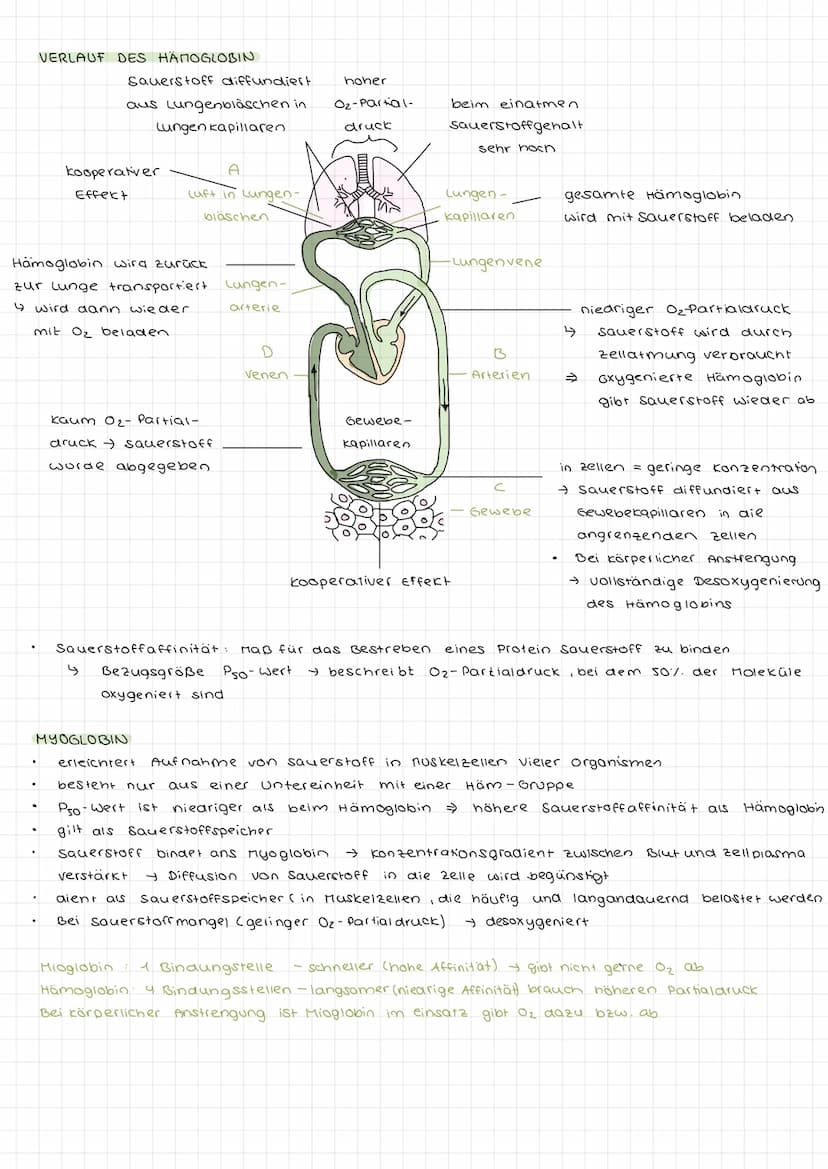 VERLAUF DES HÄMOGLOBIN
Sauerstoff diffundiert
aus Lungenbläschen in
Lungenkapillaren
hoher
O₂-Partial-
druck
beim einatmen
Sauerstoffgehalt
sehr hoch
kooperativer
Effekt
A
Luft in Lungen-
bläschen
Lungen-
kapillaren
gesamte Hämoglobin
wird mit Sauerstoff beladen
Hämoglobin wird zurück
zur Lunge transportiert
↳ wird dann wieder
mit O₂ beladen
Lungen-
arterie
Lungenvene
niedriger O₂-Partialdruck
↳ Sauerstoff wird durch
Zellatmung verbraucht
⇒ Oxygenierte Hämoglobin
gibt Sauerstoff wieder ab
D
Venen
B
Arterien
kaum O₂-Partial-
druck → Sauerstoff
wurde abgegeben
Gewebe-
kapillaren
C
Gewebe
in Zellen = geringe Konzentraton
→ Sauerstoff diffundiert aus
Gewebekapillaren in die
angrenzenden Zellen
• Bei körperlicher Anstrengung
→ vollständige Desoxygenierung
des Hämoglobins
kooperativer Effekt
• Sauerstoffaffinität: Maß für das Bestreben eines Protein Sauerstoff zu binden
↳ Bezugsgröße P₅₀-Wert → beschreibt O₂-Partialdruck, bei dem 50% der Moleküle
oxygeniert sind
MYOGLOBIN
• erleichtert Aufnahme von Sauerstoff in Muskelzellen vieler Organismen
• besteht nur aus einer Untereinheit mit einer Häm-Gruppe
• P₅₀-Wert ist niedriger als beim Hämoglobin ⇒ höhere Sauerstoffaffinität als Hämoglobin
• gilt als Sauerstoffspeicher
• Sauerstoff bindet ans Myoglobin → Konzentrationsgradient zwischen Blut und Zellplasma
verstärkt → Diffusion von Sauerstoff in die Zelle wird begünstigt
• dient als Sauerstoffspeicher (in Muskelzellen, die häufig und langandauernd belastet werden
• Bei Sauerstoffmangel (geringer O₂-Partialdruck) → desoxygeniert
Mioglobin : 1 Bindungstelle - schneller (hohe Affinität) → gibt nicht gerne O₂ ab
Hämoglobin: 4 Bindungsstellen - langsamer (niedrige Affinität) brauch höheren Partialdruck
Bei körperlicher Anstrengung ist Mioglobin im einsatz gibt O₂ dazu bzw. ab